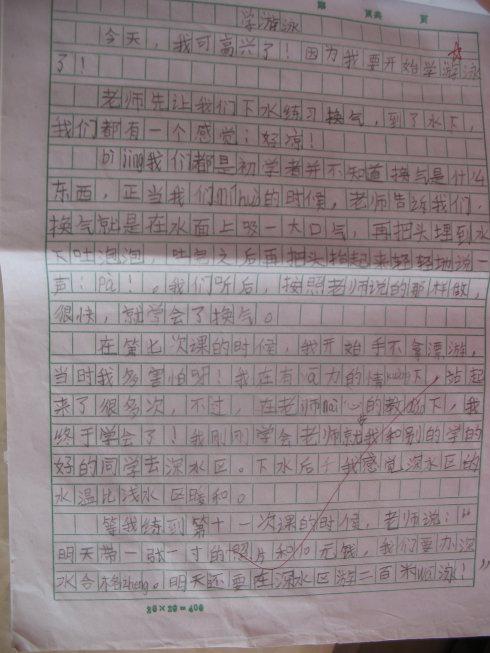 第 页共 页
学游泳
今天，我可高兴了！因为我要开始学游泳
了！
老师先让我们下水练习换气，到了水下，
我们都有一个感觉：好凉！
bì jìng我们都是初学者并不知道换气是什么
东西，正当我们的时候，老师告诉我们，
换气就是在水面上吸一大口气，再把头埋到水
下吐泡泡，吐完之后再把头抬起来轻轻地说一
声：Pà！。我们听后，按照老师说的那样做，
很快，就学会了换气。
在第七次课的时候，我开始手不拿漂游，
当时我多害怕呀！我在有力的情下，站起
来了很多次，不过，在老师nài心的教下，我
终于学会了！我刚刚学会老师就我和别的学的
好的同学去深水区。下水后，我感觉深水区的
水温比浅水区暖和。
等我练到第十一次课的时候，老师说：“
明天带一张一寸的照片和10元钱，我们要办深
水合格zhèng。明天还要在深水区游二百米wèi泳！”
20×20=400